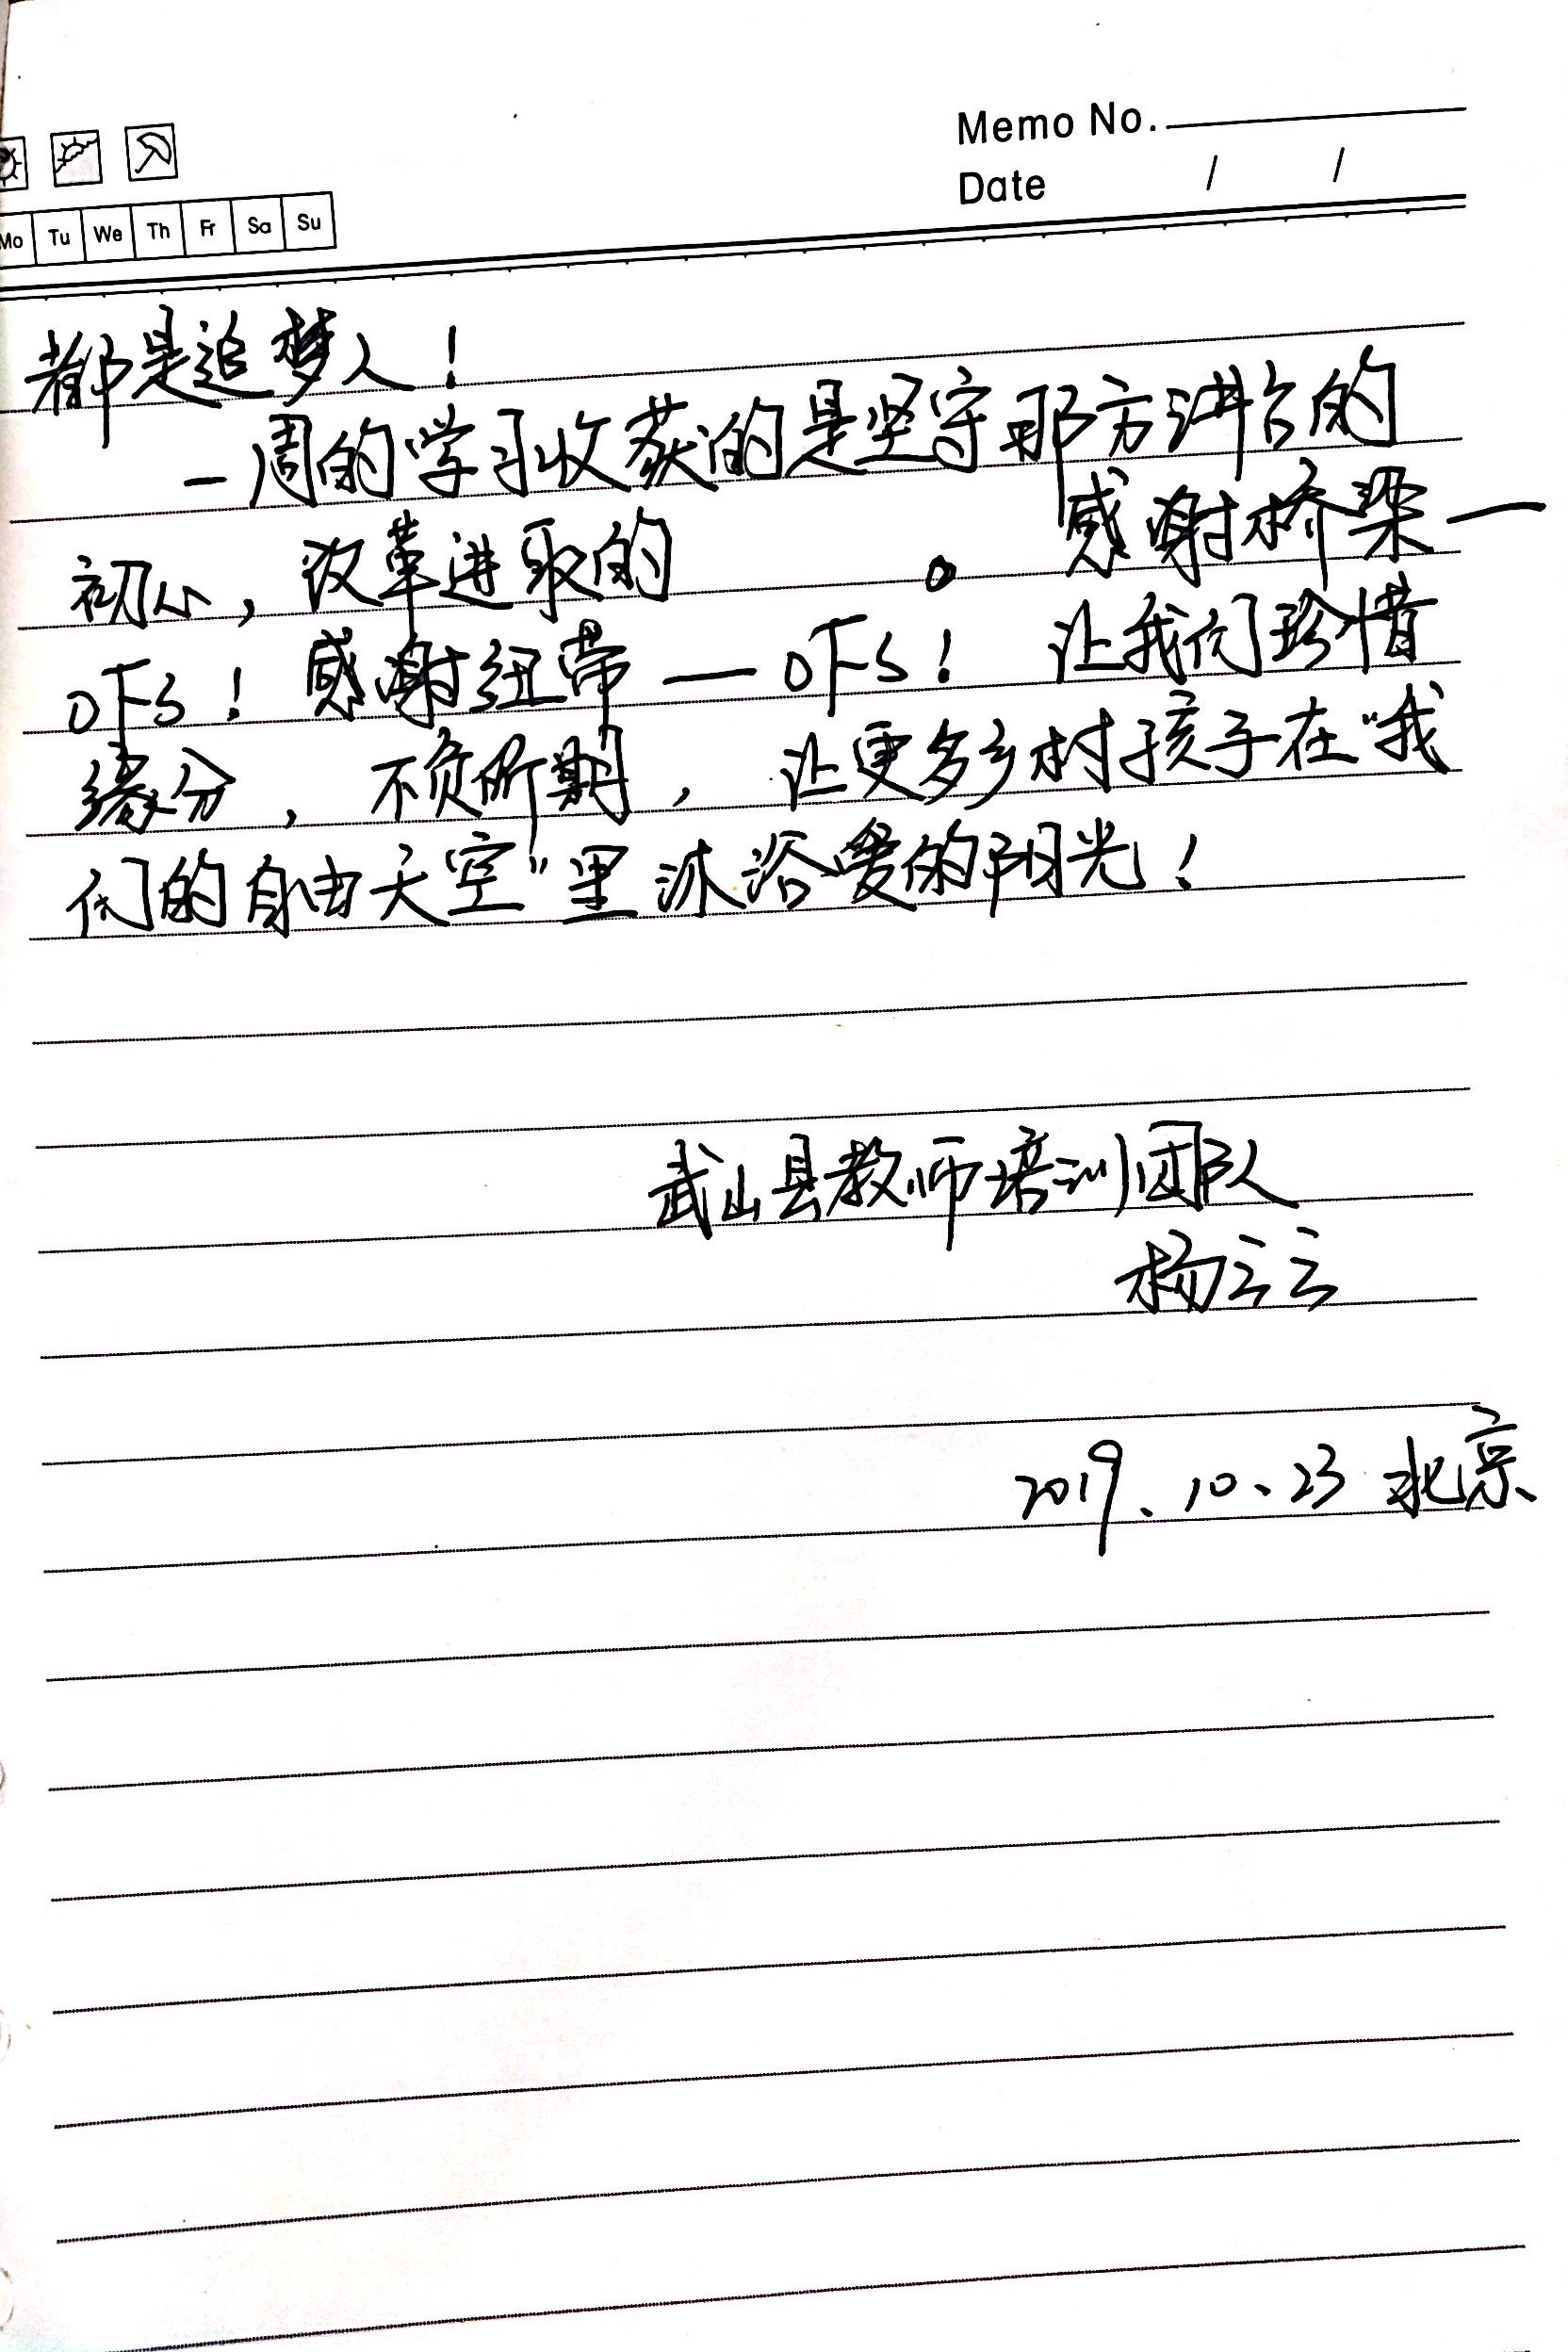 Memo No.
Date / /
Mo Tu We Th Fr Sa Su
都是追梦人！
一周的学习收获的是坚守那方讲台的
初心，改革进取的 。感谢桥梁一
OFS！感谢纽带一OFS！让我们珍惜
缘分，不负所期，让更多乡村孩子在“我
们的自由天空”里沐浴爱的阳光！
武山县教师培训团队
杨云云
2019、10、23 北京